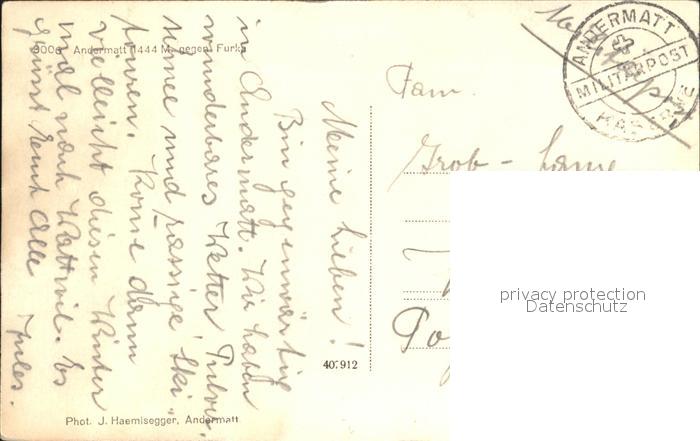 3006 Andermatt (1444 M. gegen Furka
Meine Lieben!
Bin gegenwärtig
in Andermatt. Wir haben
wunderbares Wetter Pulver-
schnee und rassige "Ski"
touren. Komme dann
vielleicht diesen Winter
mal nach Wattwil. Es
grüsst Euch Alle
Jules.
Phot. J. Haemisegger, Andermatt
407912
Fam.
Grob -
ANDERMATT
MILITÄRPOST
KASERNE
privacy protection
Datenschutz